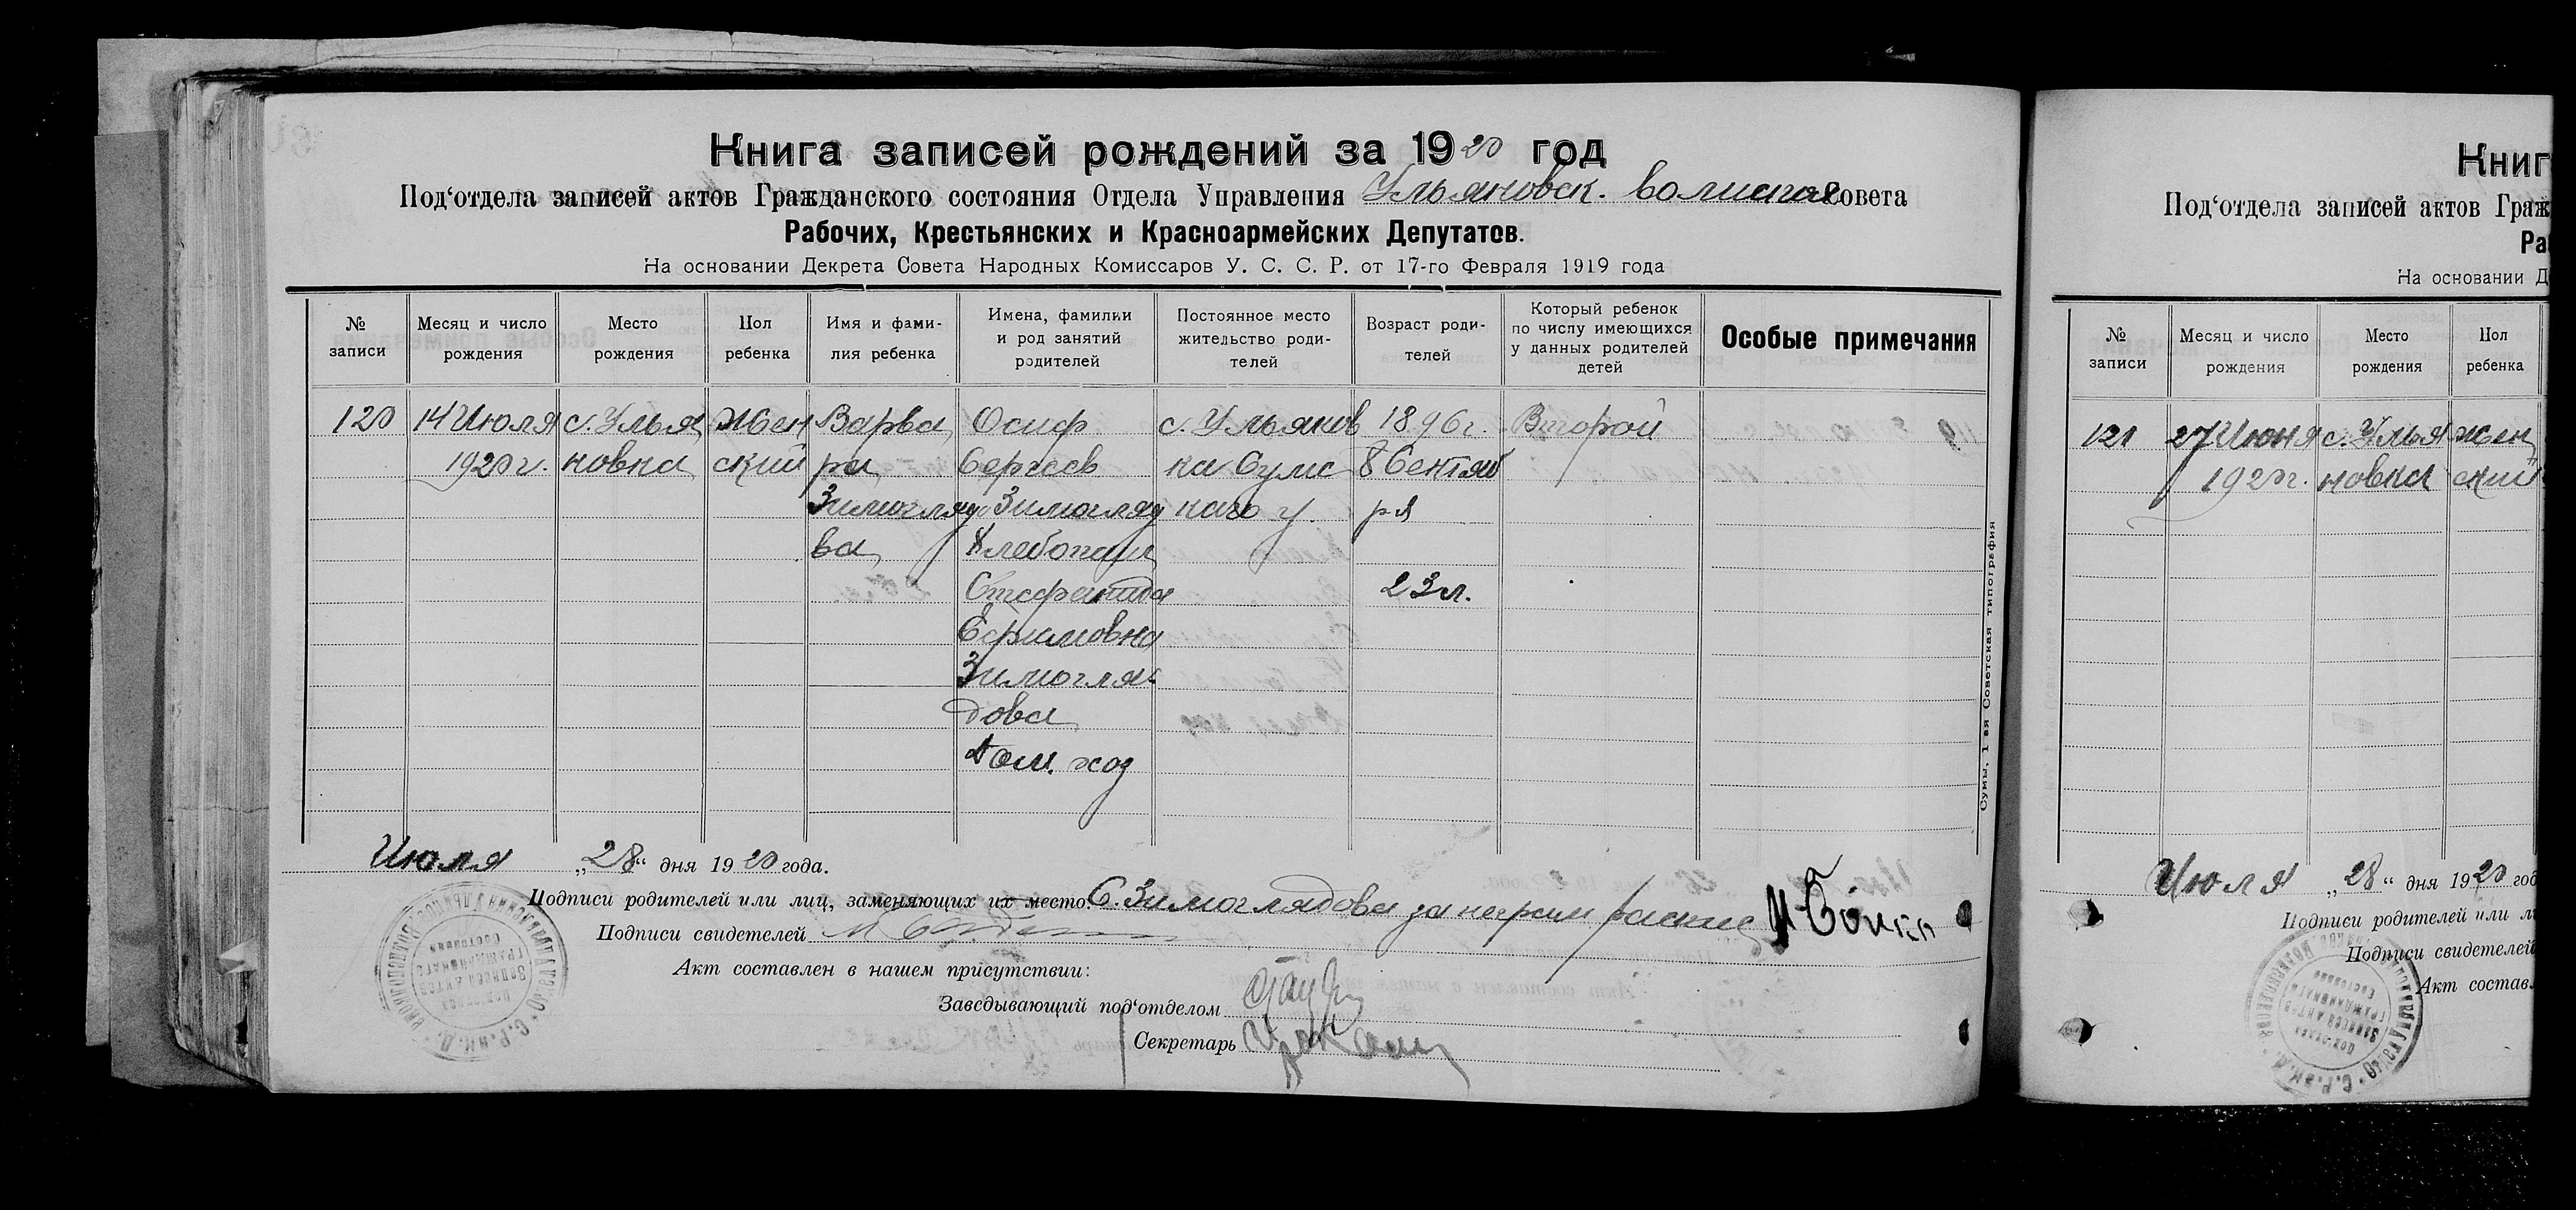 Книга записей рождений за 1920 год
Под‘отдела записей актов Гражданского состояния Отдела Управления Ульяновск. волисполк Совета
Рабочих, Крестьянских и Красноармейских Депутатов.
На основании Декрета Совета Народных Комиссаров У. С. С. Р. от 17-го Февраля 1919 года
№ записи
Месяц и число рождения
Место рождения
Пол ребенка
Имя и фами-
лия ребенка
Имена, фамилии
и род занятий
родителей
Постоянное место
жительство роди-
телей
Возраст роди-
телей
Который ребенок
по числу имеющихся
у данных родителей
детей
Особые примечания
120
14 Июля
1920 г.
с. Улья
новка
Жен
ский
Варва
ра
Зимогляду
ва
Осиф
Сергеев
Зимогляд
Хлебопаш
Ефимовна
Зимогля
дова
Дом. хоз
с. Ульянов
ка Сумс
каго у.
1896 г.
8 Сентяб
ря
23 л.
Второй
Июля „28“ дня 1920 года.
Подписи родителей или лиц, заменяющих их место: С. Зимоглядова за неграм роспис
Подписи свидетелей
Акт составлен в нашем присутствии:
Заведывающий под‘отделом
Секретарь
Сумы, 1-ая Советская типография
Книг
Под‘отдела записей актов Граж
Ра
На основании Д
№ записи
Месяц и число рождения
Место рождения
Пол ребенка
121
27 Июня
1920 г.
с. Улья
новка
жен
ский
Июля „28“ дня 1920 год
Подписи родителей или л
Подписи свидетелей
Акт составл